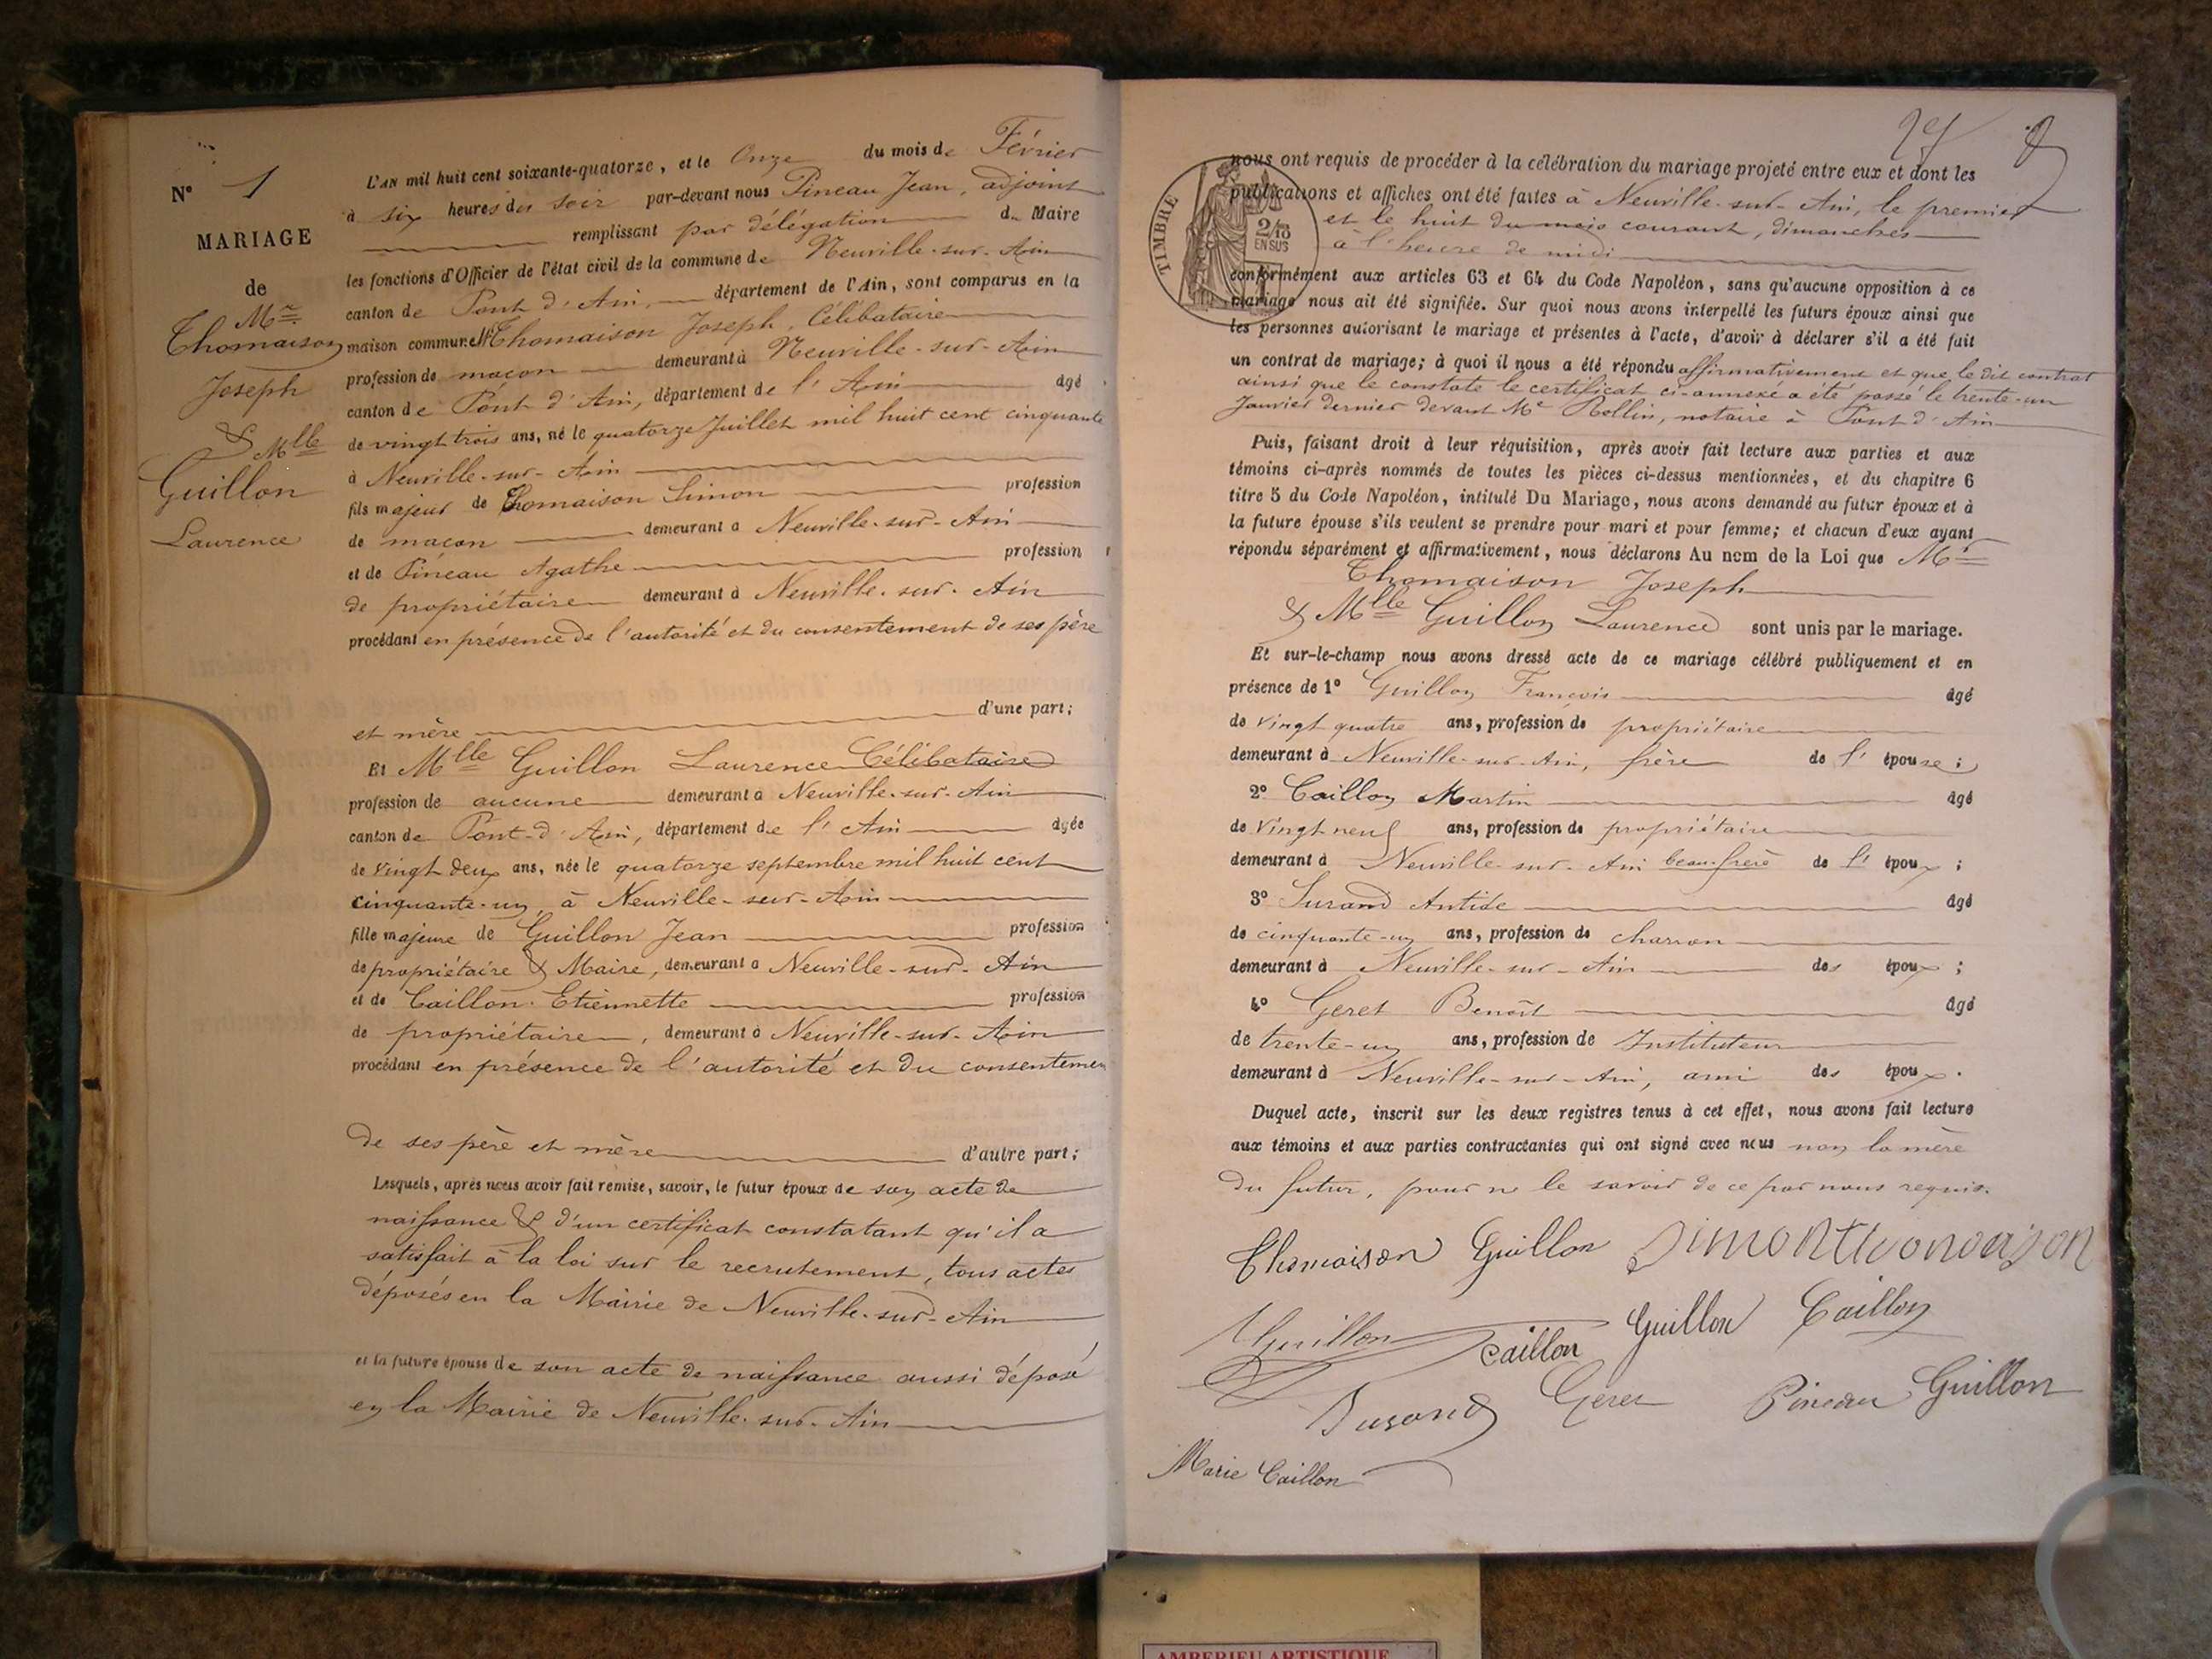 N° 1
MARIAGE
de
Mr.
Thomaison
Joseph
& Mlle
Guillon
Laurence
L'AN mil huit cent soixante-quatorze, et le Onze du mois de Février
à six heures du soir par-devant nous Pineau Jean, adjoint
remplissant par délégation du Maire
les fonctions d'Officier de l'état civil de la commune de Neuville-sur-Ain
canton de Pont d'Ain, département de l'Ain, sont comparus en la
maison commune Mr Thomaison Joseph, Célibataire
profession de maçon demeurant à Neuville-sur-Ain
canton de Pont d'Ain, département de l'Ain âgé
de vingt trois ans, né le quatorze Juillet mil huit cent cinquante
à Neuville-sur-Ain
fils majeur de Thomaison Simon profession
de maçon demeurant à Neuville-sur-Ain
et de Pineau Agathe profession
de propriétaire demeurant à Neuville-sur-Ain
procédant en présence de l'autorité et du consentement de ses père
et mère d'une part;
Et Mlle Guillon Laurence Célibataire
profession de aucune demeurant à Neuville-sur-Ain
canton de Pont-d'Ain, département de l'Ain âgée
de vingt deux ans, née le quatorze septembre mil huit cent
cinquante-un, à Neuville-sur-Ain
fille majeure de Guillon Jean profession
de propriétaire & Maire, demeurant à Neuville-sur-Ain
et de Caillon Etiennette profession
de propriétaire, demeurant à Neuville-sur-Ain
procédant en présence de l'autorité et du consentemen
de ses père et mère d'autre part;
Lesquels, après nous avoir fait remise, savoir, le futur époux de son acte de
naissance & d'un certificat constatant qu'il a
satisfait à la loi sur le recrutement, tous actes
déposés en la Mairie de Neuville-sur-Ain
et la future épouse de son acte de naissance aussi déposé
en la Mairie de Neuville-sur-Ain
TIMBRE
2/10
EN SUS
nous ont requis de procéder à la célébration du mariage projeté entre eux et dont les
publications et affiches ont été faites à Neuville-sur-Ain, le premier
et le huit du mois courant, dimanches
à l'heure de midi
conformément aux articles 63 et 64 du Code Napoléon, sans qu'aucune opposition à ce
mariage nous ait été signifiée. Sur quoi nous avons interpellé les futurs époux ainsi que
les personnes autorisant le mariage et présentes à l'acte, d'avoir à déclarer s'il a été fait
un contrat de mariage; à quoi il nous a été répondu affirmativement et que le dit contrat
ainsi que le constate le certificat ci-annexé a été passé le trente-un
Janvier dernier devant Me Rollin, notaire à Pont d'Ain
Puis, faisant droit à leur réquisition, après avoir fait lecture aux parties et aux
témoins ci-après nommés de toutes les pièces ci-dessus mentionnées, et du chapitre 6
titre 5 du Code Napoléon, intitulé Du Mariage, nous avons demandé au futur époux et à
la future épouse s'ils veulent se prendre pour mari et pour femme; et chacun d'eux ayant
répondu séparément et affirmativement, nous déclarons Au nom de la Loi que Mr
Thomaison Joseph
& Mlle Guillon Laurence sont unis par le mariage.
Et sur-le-champ nous avons dressé acte de ce mariage célébré publiquement et en
présence de 1° Guillon François âgé
de vingt quatre ans, profession de propriétaire
demeurant à Neuville-sur-Ain, frère de l'épouse;
2° Caillon Martin âgé
de vingt neuf ans, profession de propriétaire
demeurant à Neuville-sur-Ain beau-frère de l'époux;
3° Durand Antide âgé
de cinquante-un ans, profession de charron
demeurant à Neuville-sur-Ain des époux;
4° Geret Benoît âgé
de trente-un ans, profession de Instituteur
demeurant à Neuville-sur-Ain, ami des époux.
Duquel acte, inscrit sur les deux registres tenus à cet effet, nous avons fait lecture
aux témoins et aux parties contractantes qui ont signé avec nous non la mère
du futur, pour ne le savoir de ce par nous requis.
Thomaison Guillon Simon thomaison
Guillon Caillon Guillon Caillon
Durand Geret Pineau Guillon
Marie Caillon
AMBERIEU ARTISTIQUE